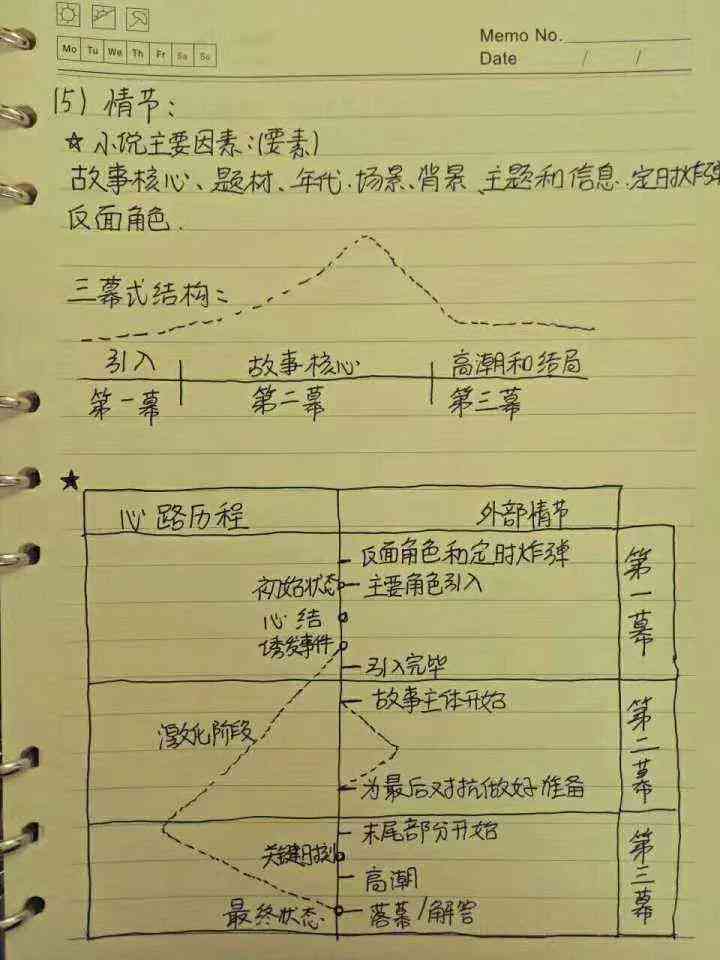 Memo No.
Mo Tu We Th Fr Sa Su
Date / /
(5) 情节:
☆ 小说主要因素:(要素)
故事核心、题材、年代、场景、背景、主题和信息、定时炸弹
反面角色.
三幕式结构:
引入 故事核心 高潮和结局
第一幕 第二幕 第三幕
★
心路历程 外部情节
反面角色和定时炸弹
初始状态 主要角色引入
心结
诱发事件
引入完毕
第一幕
故事主体开始
激化阶段
为最后对抗做好准备
第二幕
末尾部分开始
关键时刻
高潮
最终状态 落幕/解答
第三幕